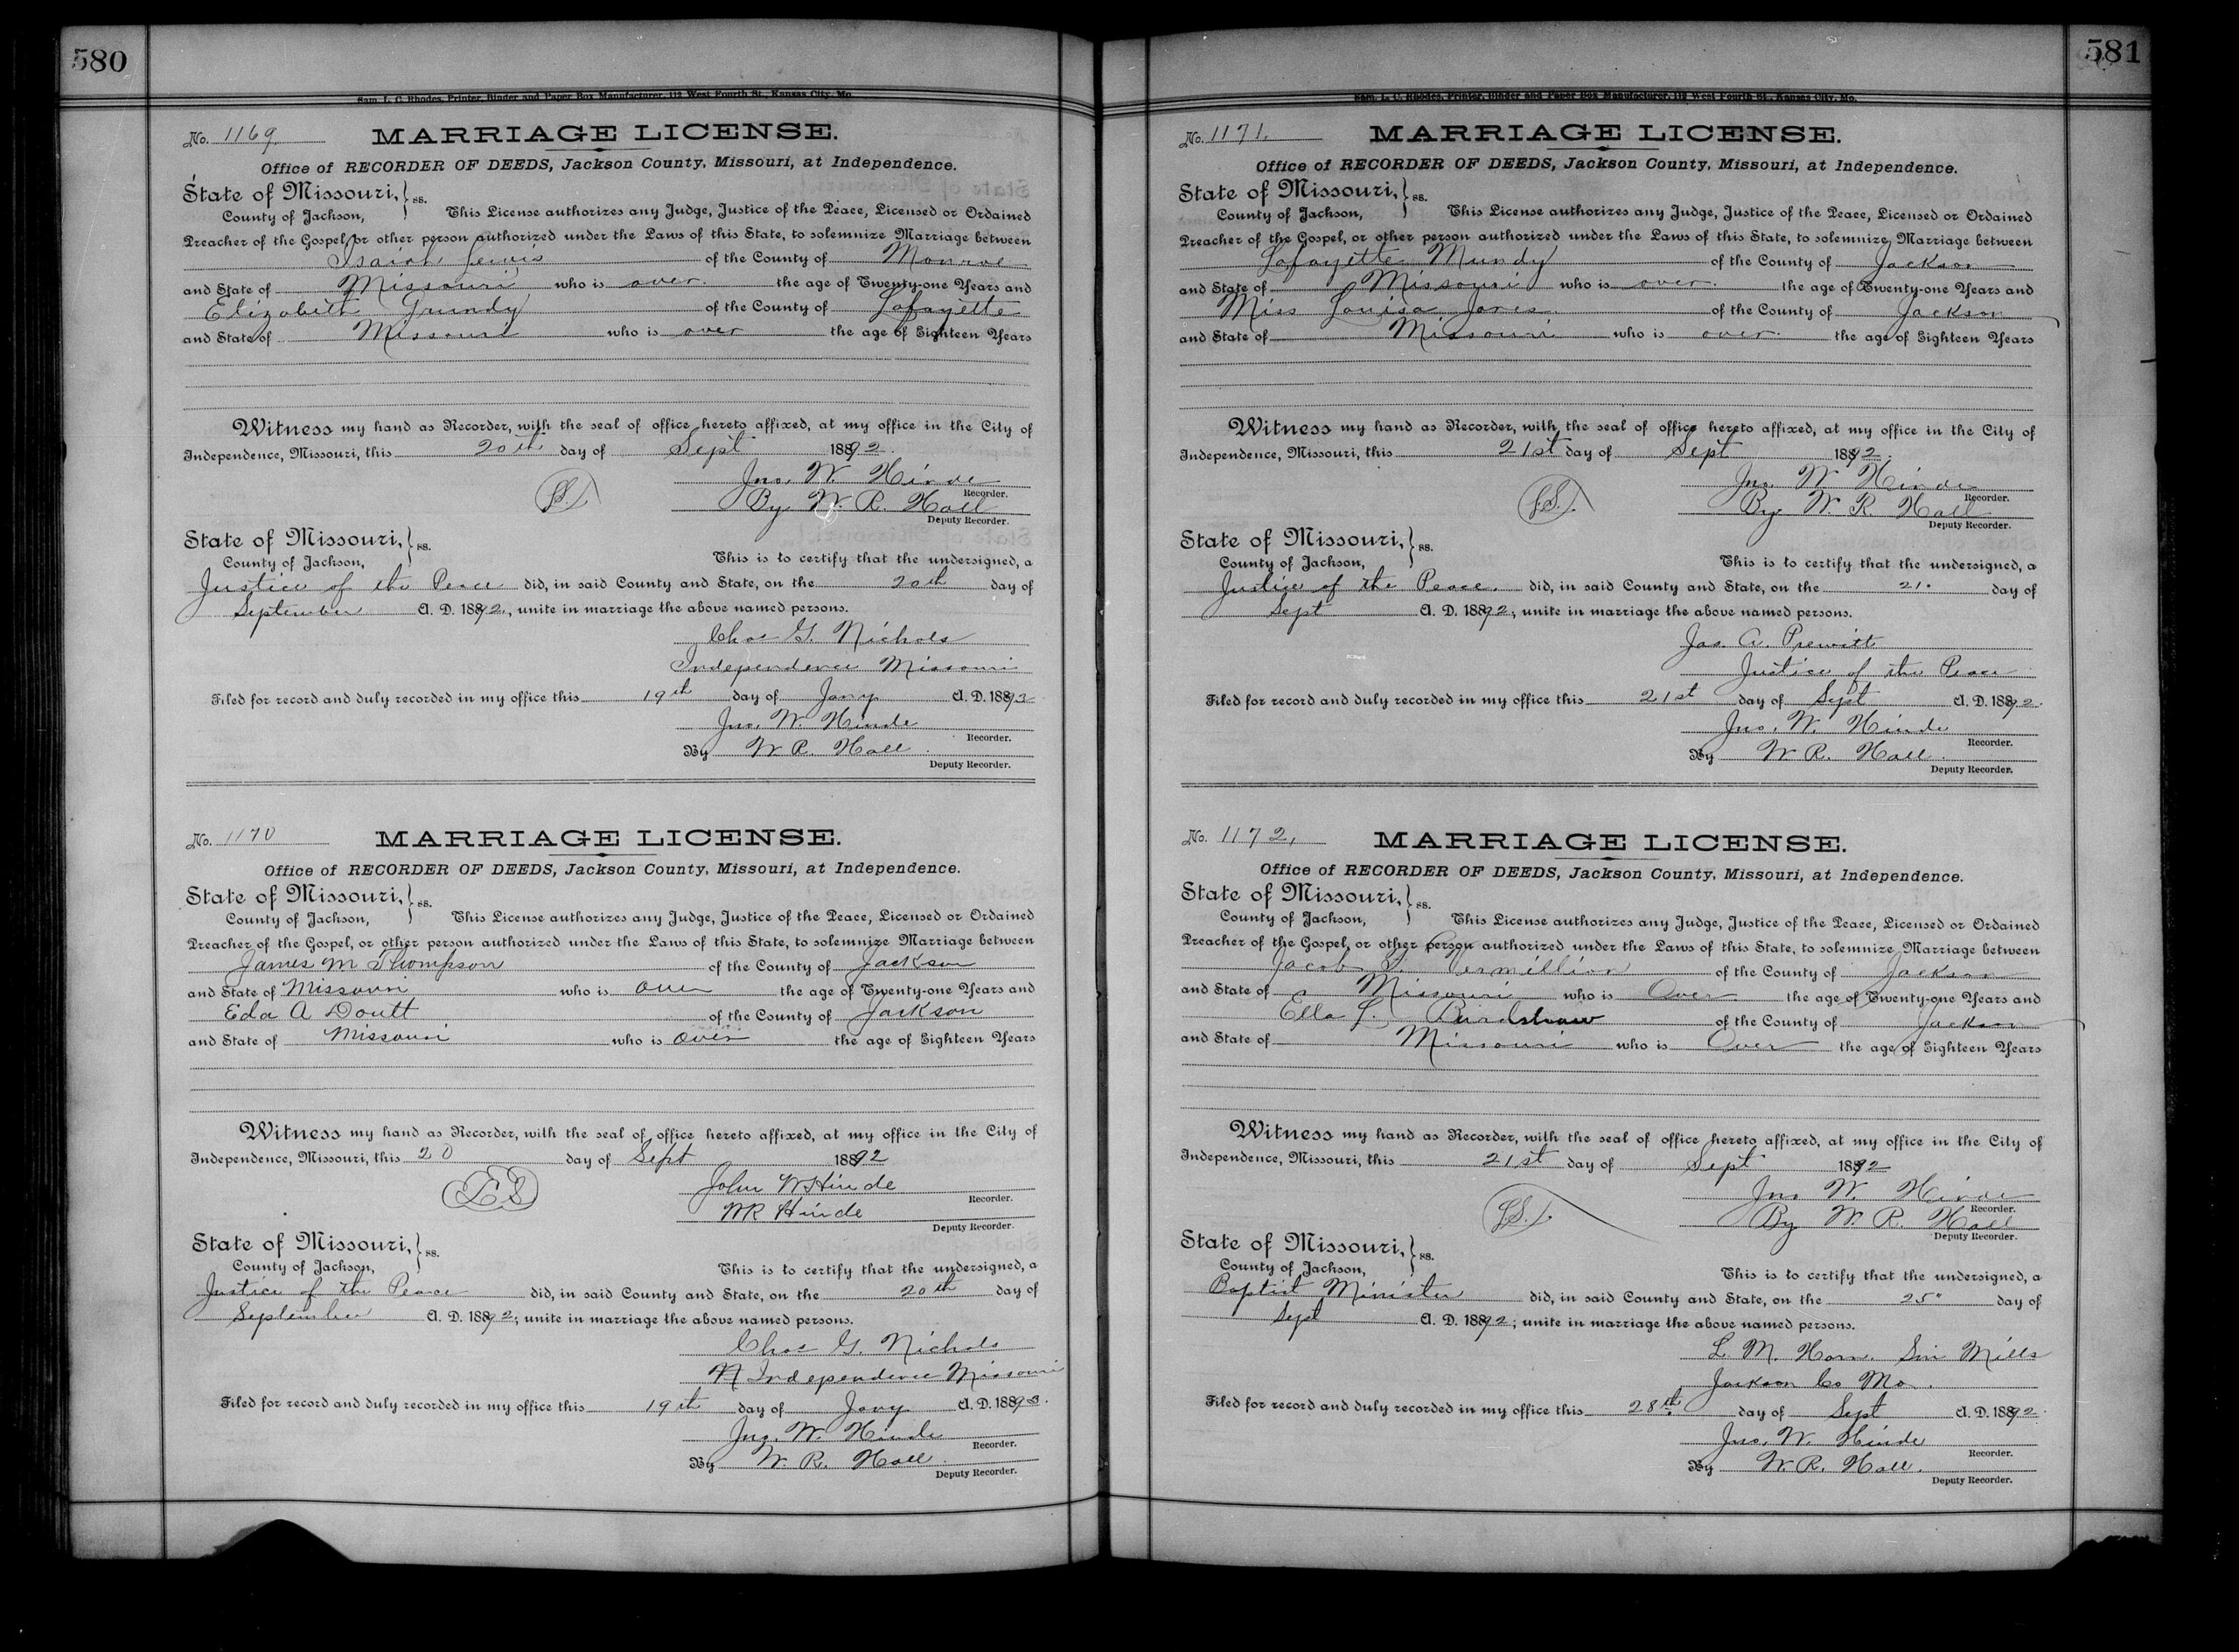 580
Sam. L. C. Rhodes, Printer, Binder and Paper Box Manufacturer, 112 West Fourth St., Kansas City, Mo.
No. 1169.
MARRIAGE LICENSE.
Office of RECORDER OF DEEDS, Jackson County, Missouri, at Independence.
State of Missouri, } ss.
County of Jackson, This License authorizes any Judge, Justice of the Peace, Licensed or Ordained
Preacher of the Gospel, or other person authorized under the Laws of this State, to solemnize Marriage between
Isaiah Lewis of the County of Monroe
and State of Missouri who is over the age of Twenty-one Years and
Elizabeth of the County of Lafayette
and State of Missouri who is over the age of Eighteen Years
Witness my hand as Recorder, with the seal of office hereto affixed, at my office in the City of
Independence, Missouri, this 20th day of Sept 1892.
Jno. W. Hinde
Recorder.
By W. R. Hall
Deputy Recorder.
State of Missouri, } ss.
County of Jackson, This is to certify that the undersigned, a
Justice of the Peace did, in said County and State, on the 20th day of
September A. D. 1892, unite in marriage the above named persons.
Chas G. Nichols
Independence Missouri
Filed for record and duly recorded in my office this 19th day of Jany A. D. 1893
Jno. W. Hinde
Recorder.
By W. R. Hall.
Deputy Recorder.
No. 1170
MARRIAGE LICENSE.
Office of RECORDER OF DEEDS, Jackson County, Missouri, at Independence.
State of Missouri, } ss.
County of Jackson, This License authorizes any Judge, Justice of the Peace, Licensed or Ordained
Preacher of the Gospel, or other person authorized under the Laws of this State, to solemnize Marriage between
James M Thompson of the County of Jackson
and State of Missouri who is over the age of Twenty-one Years and
Eda A Doutt of the County of Jackson
and State of Missouri who is over the age of Eighteen Years
Witness my hand as Recorder, with the seal of office hereto affixed, at my office in the City of
Independence, Missouri, this 20 day of Sept 1892
LS
John W Hinde
Recorder.
WR Hinde
Deputy Recorder.
State of Missouri, } ss.
County of Jackson, This is to certify that the undersigned, a
Justice of the Peace did, in said County and State, on the 20th day of
September A. D. 1892; unite in marriage the above named persons.
Chas G. Nichols
Independence Missouri
Filed for record and duly recorded in my office this 19th day of Jany A. D. 1893.
Jno. W. Hinde
Recorder.
By W. R. Hall.
Deputy Recorder.
581
Sam. L. C. Rhodes, Printer, Binder and Paper Box Manufacturer, 112 West Fourth St., Kansas City, Mo.
No. 1171.
MARRIAGE LICENSE.
Office of RECORDER OF DEEDS, Jackson County, Missouri, at Independence.
State of Missouri, } ss.
County of Jackson, This License authorizes any Judge, Justice of the Peace, Licensed or Ordained
Preacher of the Gospel, or other person authorized under the Laws of this State, to solemnize Marriage between
Lafayette Mundy of the County of Jackson
and State of Missouri who is over. the age of Twenty-one Years and
Miss Louisa Jones of the County of Jackson
and State of Missouri who is over. the age of Eighteen Years
Witness my hand as Recorder, with the seal of office hereto affixed, at my office in the City of
Independence, Missouri, this 21st day of Sept 1892.
(L.S.)
Jno. W. Hinde
Recorder.
By W. R. Hall
Deputy Recorder.
State of Missouri, } ss.
County of Jackson, This is to certify that the undersigned, a
Justice of the Peace. did, in said County and State, on the 21. day of
Sept A. D. 1892; unite in marriage the above named persons.
Jas. A. Prewitt
Justice of the Peace
Filed for record and duly recorded in my office this 21st day of Sept A. D. 1892.
Jno. W. Hinde
Recorder.
By W. R. Hall.
Deputy Recorder.
No. 1172,
MARRIAGE LICENSE.
Office of RECORDER OF DEEDS, Jackson County, Missouri, at Independence.
State of Missouri, } ss.
County of Jackson, This License authorizes any Judge, Justice of the Peace, Licensed or Ordained
Preacher of the Gospel, or other person authorized under the Laws of this State, to solemnize Marriage between
Jacob Vermillion of the County of Jackson
and State of Missouri who is Over the age of Twenty-one Years and
Ella L. of the County of Jackson
and State of Missouri who is Over the age of Eighteen Years
Witness my hand as Recorder, with the seal of office hereto affixed, at my office in the City of
Independence, Missouri, this 21st day of Sept 1892
(L.S.)
Jno W. Hinde
Recorder.
By W. R. Hall
Deputy Recorder.
State of Missouri, } ss.
County of Jackson, This is to certify that the undersigned, a
Baptist Minister did, in said County and State, on the 25" day of
Sept A. D. 1892; unite in marriage the above named persons.
L. M. Horn. Sni Mills
Jackson Co Mo.
Filed for record and duly recorded in my office this 28th day of Sept A. D. 1892.
Jno. W. Hinde
Recorder.
By W. R. Hall.
Deputy Recorder.